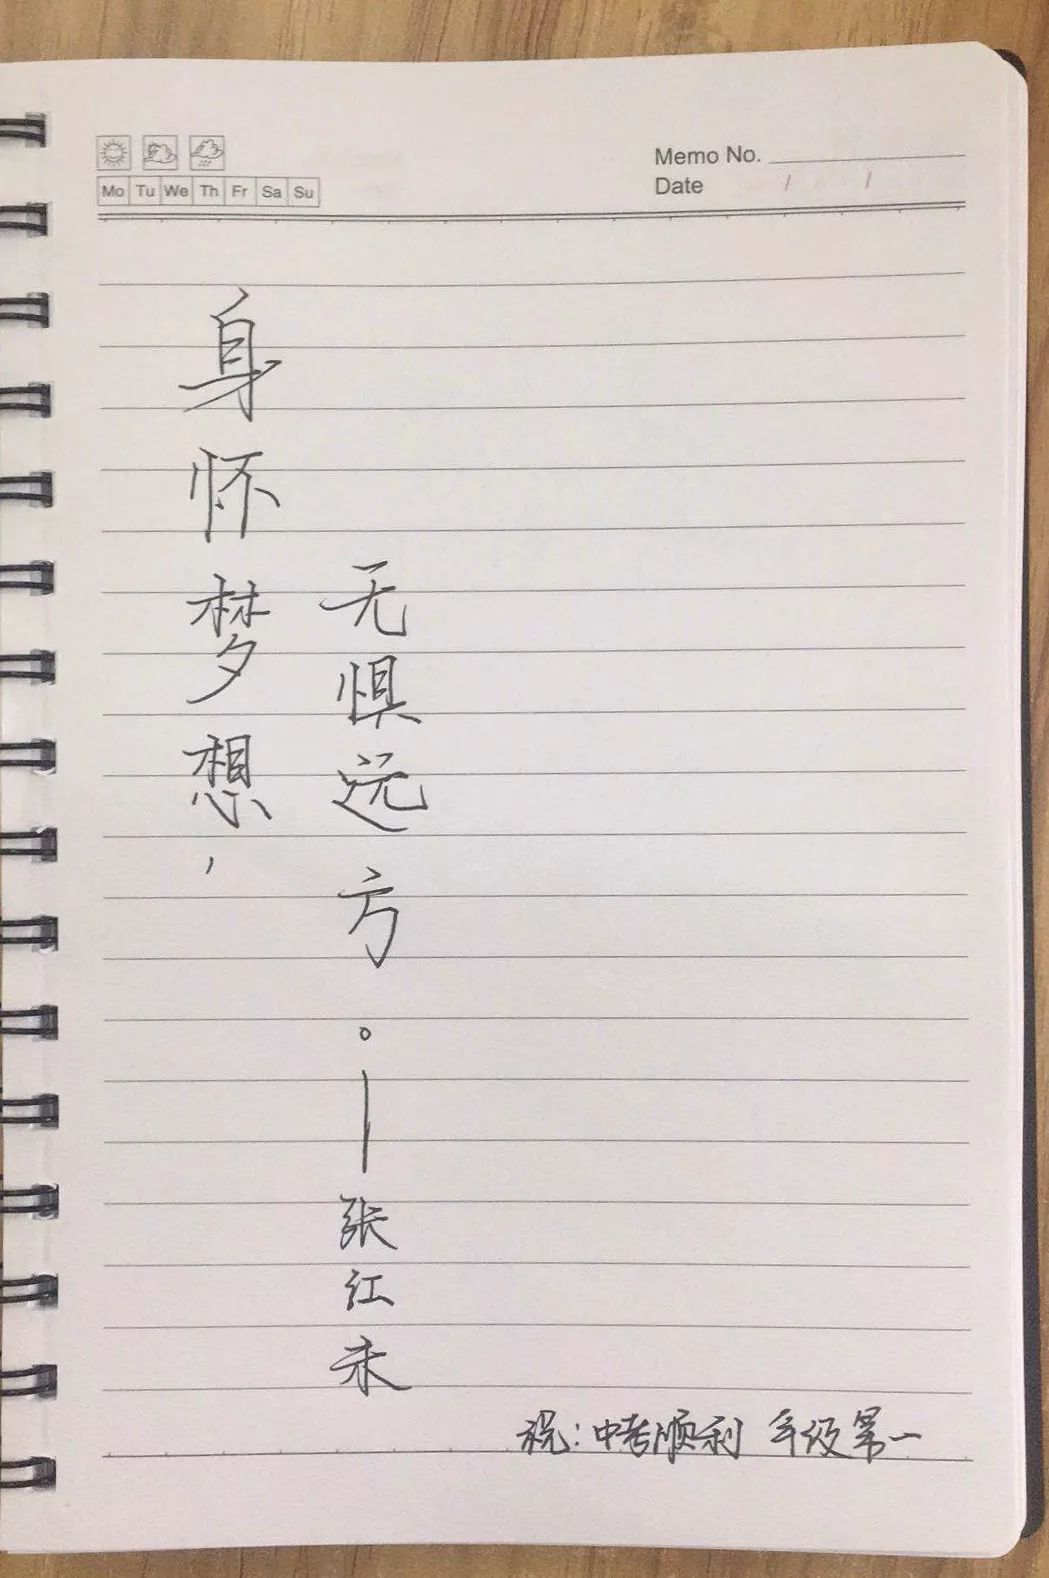 Memo No.
Mo Tu We Th Fr Sa Su
Date / /
身怀梦想,
无惧远方。—张江未
祝:中考顺利 年级第一